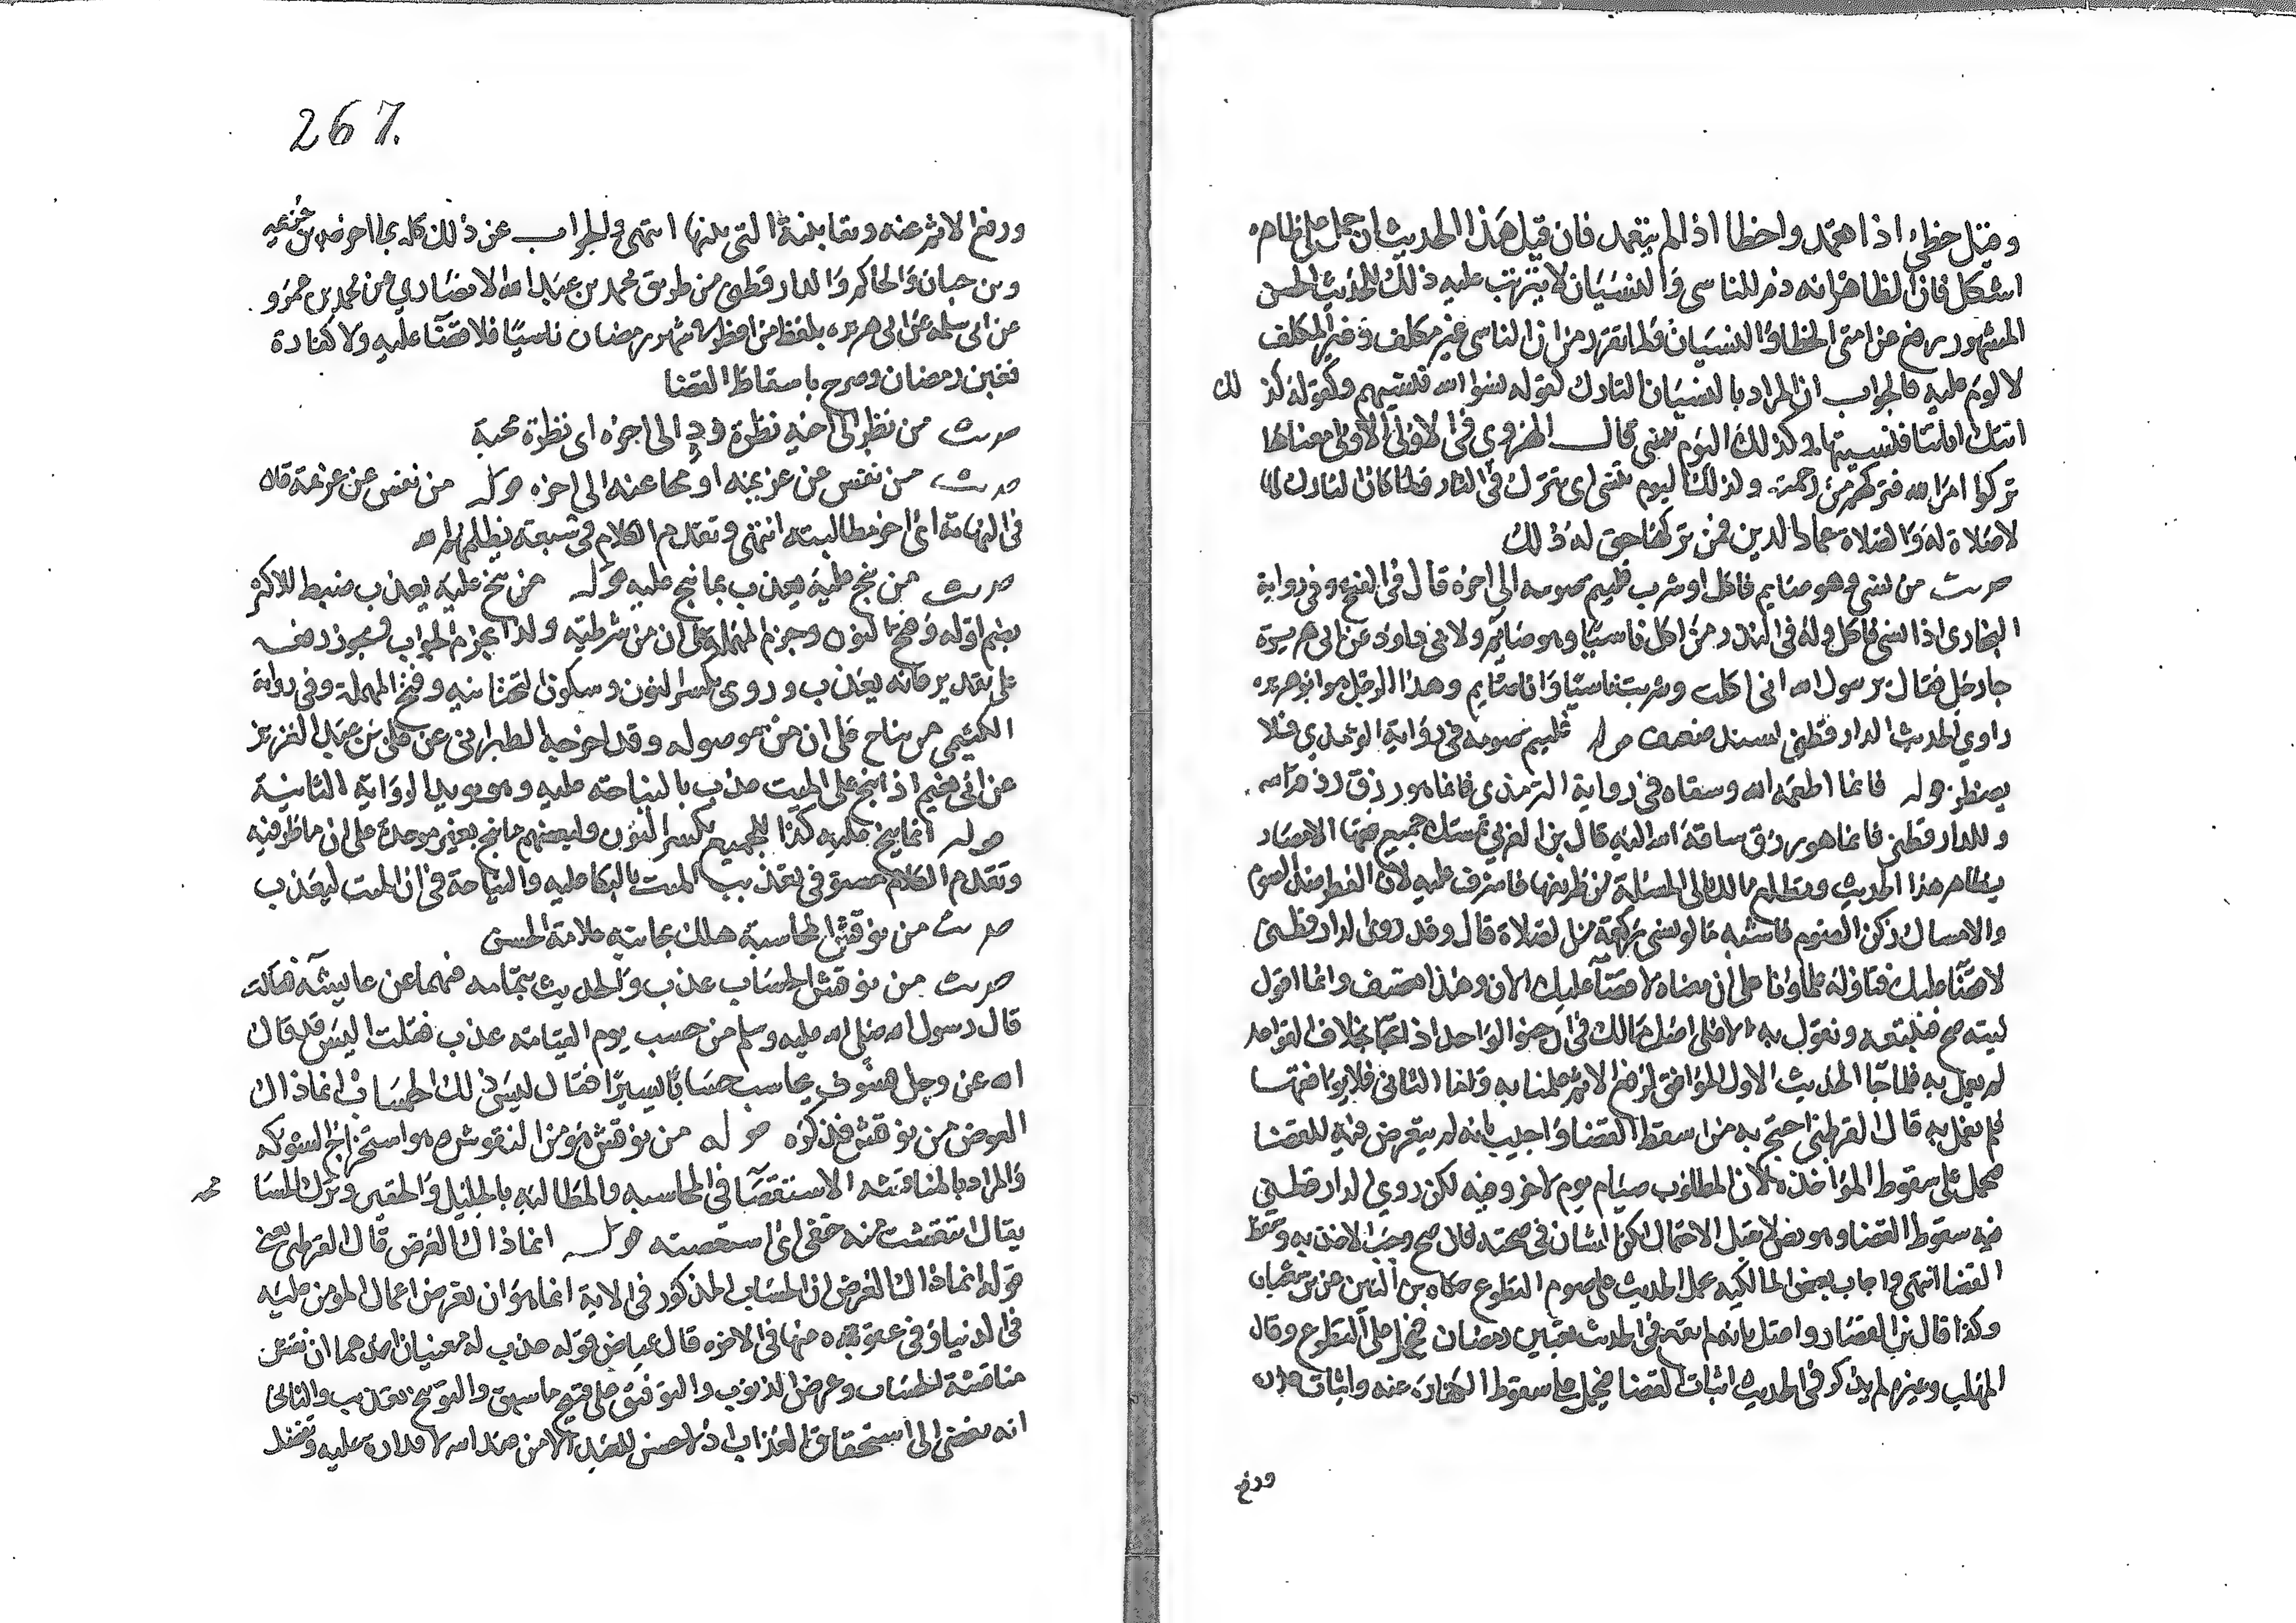 وقيل خطئ اذا تعمد واخطا اذا لم يتعمد فان قيل هذا الحديث ان حمل على ظاهره
اشكل فان الظاهر انه ذم للناسي والنسيان لا يترتب عليه ذلك للحديث الحسن
المشهور رفع عن امتي الخطا والنسيان ولما تقرر من ان الناسي غير مكلف وغير المكلف
لا لوم عليه فالجواب ان المراد بالنسيان التارك كقوله نسوا الله فنسيهم وكقوله كذلك
اتتك اياتنا فنسيتها وكذلك اليوم تنسى قال الهروي في الاولى الاولى معناها
تركوا امر الله فتركهم من رحمته وكذلك اليوم تنسى اى تترك في النار ولما كان التارك لها
لا صلاة له والصلاة عماد الدين فمن تركها حق له ذلك
حديث من نسي وهو صايم فاكل او شرب فليتم صومه الى اخره قال في الفتح وفي رواية
البخارى اذا نسي فاكل وله في النذر من اكل ناسيا وهو صايم ولابي داود عن ابي هريرة
جا رجل فقال يرسول الله اني اكلت وشربت ناسيا وانا صايم وهذا الرجل هو ابو هريره
راوي الحديث الدارقطني بسند ضعيف قوله فليتم صومه في رواية الترمذي فلا
يفطر قوله فانما اطعمه الله وسقاه في رواية الترمذي فانما هو رزق رزقه الله
وللدارقطني فانما هو رزق ساقه الله اليه قال بن العربي تمسك جميع فقها الامصار
بظاهر هذا الحديث وتطلع مالك الى المسئلة من طريقها فاشرف عليه لان الفطر ضد الصوم
والامساك ركن الصوم فاشبه ما لو نسي ركعة من الصلاة قال وقد روى الدارقطني
لا قضا عليك فتاوله علماونا على ان معناه لا قضا عليك الان وهذا تعسف وانما اقول
ليته صح فنتبعه ونقول به الا على اصل مالك في ان خبر الواحد اذا جا بخلاف القواعد
لم يعمل به فلما جا الحديث الاول الموافق لرفع الاثم عملنا به واما الثاني فلا يوافقها
فلم نعمل به قال القرطبي احتج به من اسقط القضا واجيب بانه لم يتعرض فيه للقضا
فيحمل على سقوط المؤاخذه لان المطلوب صيام يوم لا خرم فيه لكن روى الدارقطني
فيه سقوط القضا وهو نص لا يقبل الاحتمال لكن الشان في صحته فان صح وجب الاخذ به وسقط
القضا انتهى واجاب بعض المالكيه بحمل الحديث على صوم التطوع حكاه بن التين عن بن شعبان
وكذا قال بن القصار واعتل بانه لم يقع في الحديث تعيين رمضان فيحمل على التطوع وقال
المهلب وغيره لم يذكر في الحديث اثبات القضا فيحمل على سقوط الكفاره عنه واثبات عذره
ورفع
267.
ورفع الاثم عنه وبقا نيته التي بيتها انتهى والجواب عن ذلك كله بما اخرجه بن خزيمه
وبن حبان والحاكم والدارقطني من طريق محمد بن عبد الله الانصاري عن محمد بن عمرو
عن ابي سلمه عن ابي هريره بلفظ من افطر في شهر رمضان ناسيا فلا قضا عليه ولا كفارة
فعين رمضان وصرح باسقاط القضا
حديث من نظر الى اخيه نظرة ود الى اخره اى نظرة محبة
حديث من نفس عن غريمه او محا عنه الى اخره قوله من نفس عن غريمه قال
في النهاية اى اخر مطالبته انتهى وتقدم الكلام في سبعة يظلهم الله
حديث من نيح عليه يعذب بما نيح عليه قوله من نيح عليه يعذب ضبط للاكثر
بضم اوله وفتح النون وجزم المهملة على ان من شرطيه ولذا يجزم الجواب ويجوز رفعه
على تقدير فانه يعذب وروى بكسر النون وسكون التحتانيه وفتح المهملة وفي رواية
الكشميهني من يناح على ان من موصوله وقد اخرجه الطبراني عن على بن عبد العزيز
عن ابي نعيم اذا نيح على الميت عذب بالنياحة عليه وهو يويد الرواية الثانية
قوله بما نيح عليه كذا للجميع بكسر النون ولبعضهم ما نيح بغير موحدة على ان ما ظرفيه
وتقدم الكلام مستوفى في تعذيب الميت بالبكا عليه والنياحة في ان الميت ليعذب
حديث من نوقش المحاسبة هلك بجانبه علامة الحسن
حديث من نوقش الحساب عذب والحديث بتمامه فيهما عن عايشه قالت
قال رسول الله صلى الله عليه وسلم من حسب يوم القيامة عذب فقلت اليس قد قال
الله عز وجل فسوف يحاسب حسابا يسيرا فقال ليس ذلك الحساب انما ذاك
العرض من نوقش فذكره قوله من نوقش هو من النقوش وهو استخراج الشوكه
والمراد بالمناقشه الاستقصا في المحاسبه والمطالبه بالجليل والحقير وترك المسامحه
يقال انتقشت منه حقى اى استقصيته قوله انما ذاك العرض قال القرطبى معنى
قوله انما ذاك العرض ان الحساب المذكور في الاية انما هو ان تعرض اعمال المومن عليه
في الدنيا وفي عفوه عنها في الاخره قال عياض قوله عذب له معنيان احدهما ان نفس
مناقشة الحساب وعرض الذنوب والتوقيف على قبيح ما سبق والتوبيخ تعذيب والثاني
انه يفضي الى استحقاق العذاب اذ لا حسن للعبد الا من عند الله لاقداره عليه وتفضله